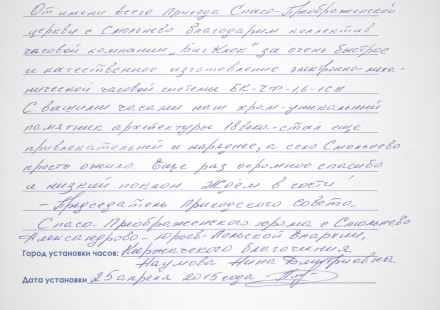 От имени всего прихода Спасо-Преображенской
церкви с Смольнево благодарим коллектив
часовой компании „БигКлок" за очень быстрое
и качественное изготовление электронно-меха-
нической часовой системы БК-ЧФ-1,6-1СМ
С вашими часами наш храм-уникальный
памятник архитектуры 18 века-стал ещё
привлекательней и наряднее, а село Смольнево
просто ожило. Ещё раз огромное спасибо
и низкий поклон. Ждём в гости!
- Председатель Приходского совета-
Спасо-Преображенского храма с Смольнево
Александрово-Юрьев-Польской Епархии,
Город установки часов: Киржачского благочиния
Наумова Нина Дмитриевна
Дата установки 25 апреля 2015 года